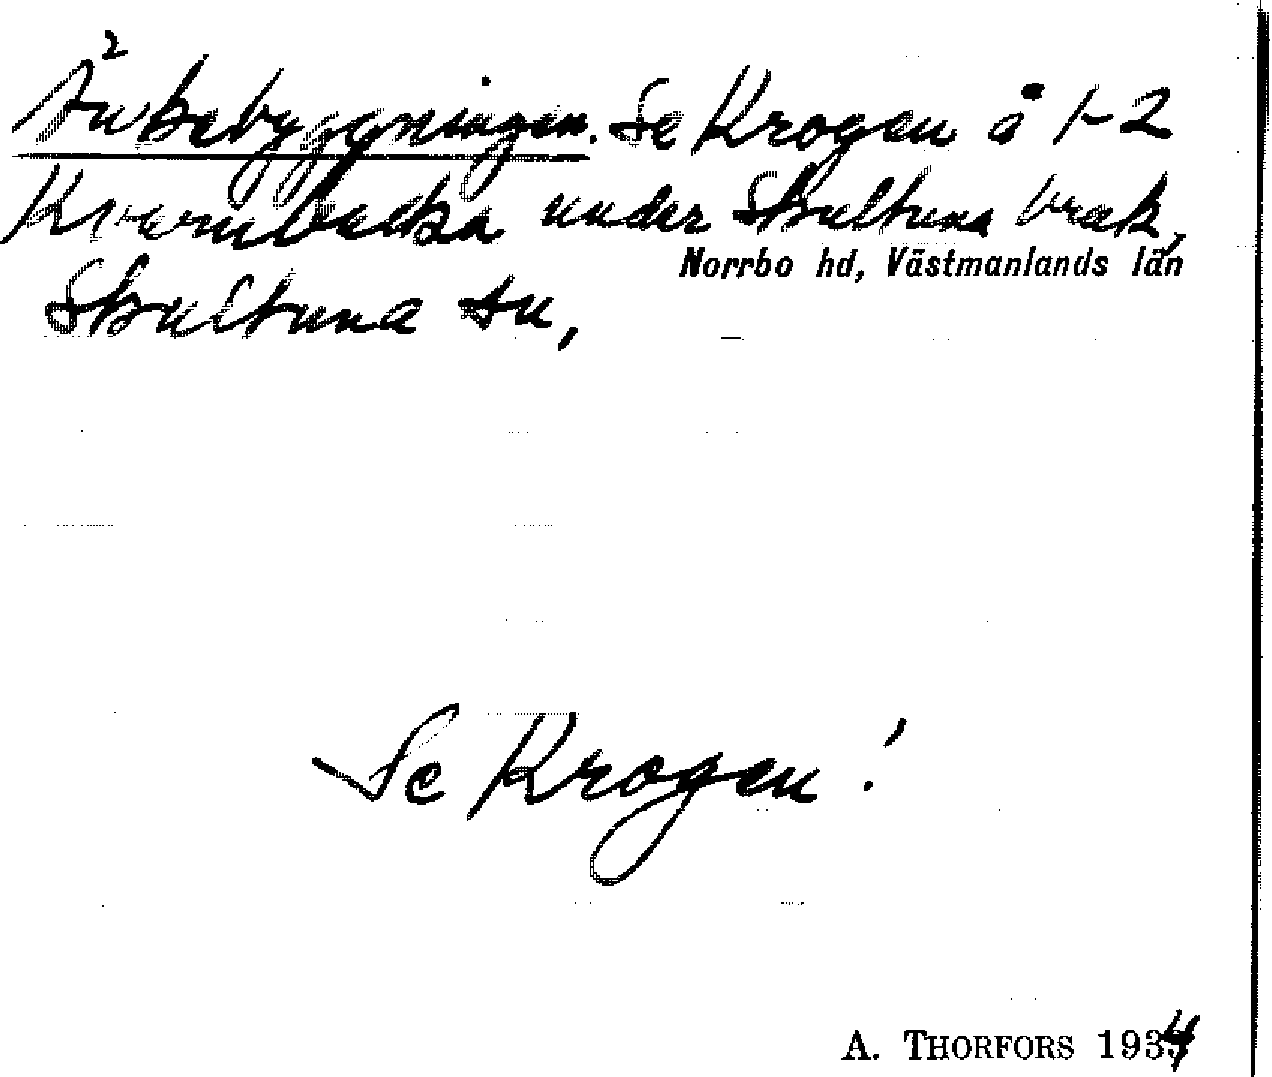 Se Krogen å 1-2
Kvarnbacka under Skultuna bruk,
Norrbo hd, Västmanlands län
Skultuna sn,
Se Krogen!
A. THORFORS 1934